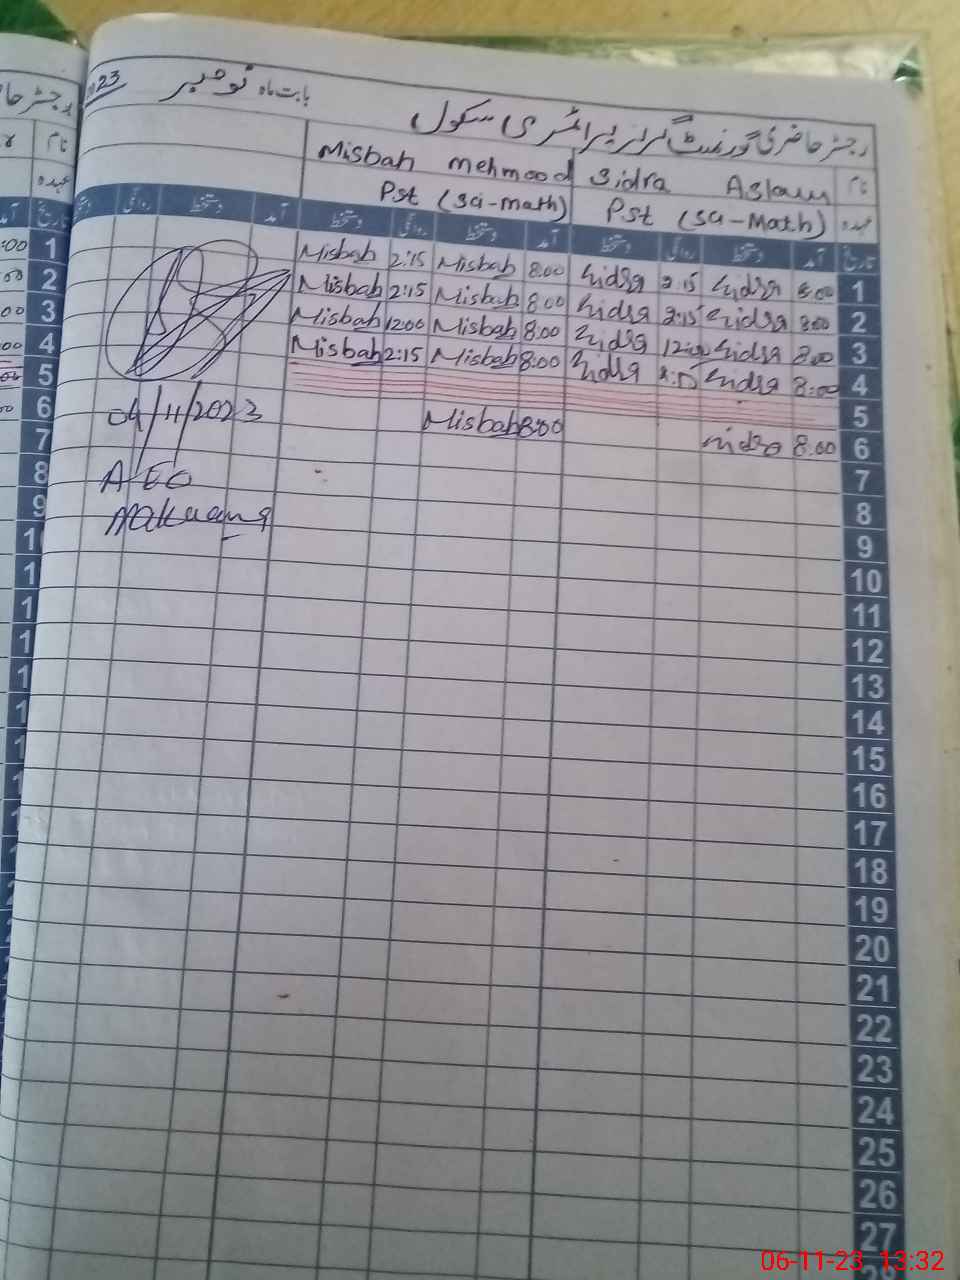 رجسٹر حاضری گورنمنٹ گرلز پرائمری سکول بابت ماہ نومبر 2023
نام Sidra Aslam Misbah Mehmood
عہدہ Pst (sci-Math) Pst (sci-math)
تاریخ آمد دستخط روانگی دستخط آمد دستخط روانگی دستخط آمد دستخط روانگی دستخط
1 8:00 Sidra 2:15 Sidra 8:00 Misbah 2:15 Misbah
2 8:00 Sidra 2:15 Sidra 8:00 Misbah 2:15 Misbah
3 8:00 Sidra 12:00 Sidra 8:00 Misbah 12:00 Misbah
4 8:00 Sidra 2:15 Sidra 8:00 Misbah 2:15 Misbah
5
6 8:00 Sidra 8:00 Misbah
7
8
9
10
11
12
13
14
15
16
17
18
19
20
21
22
23
24
25
26
27
28
04/11/2023
AEO
رجسٹر
نام
عہدہ
تاریخ
1
2
3
4
5
6
7
8
9
06-11-23 13:32